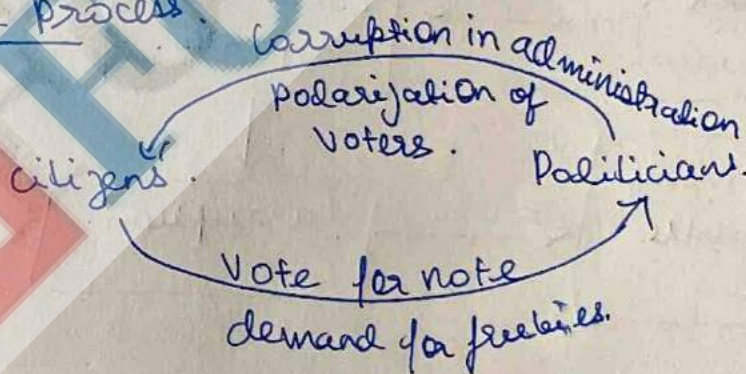 Process.
Corruption in administration
polarization of
voters.
citizens.
Politicians.
Vote for note
demand for freebies.